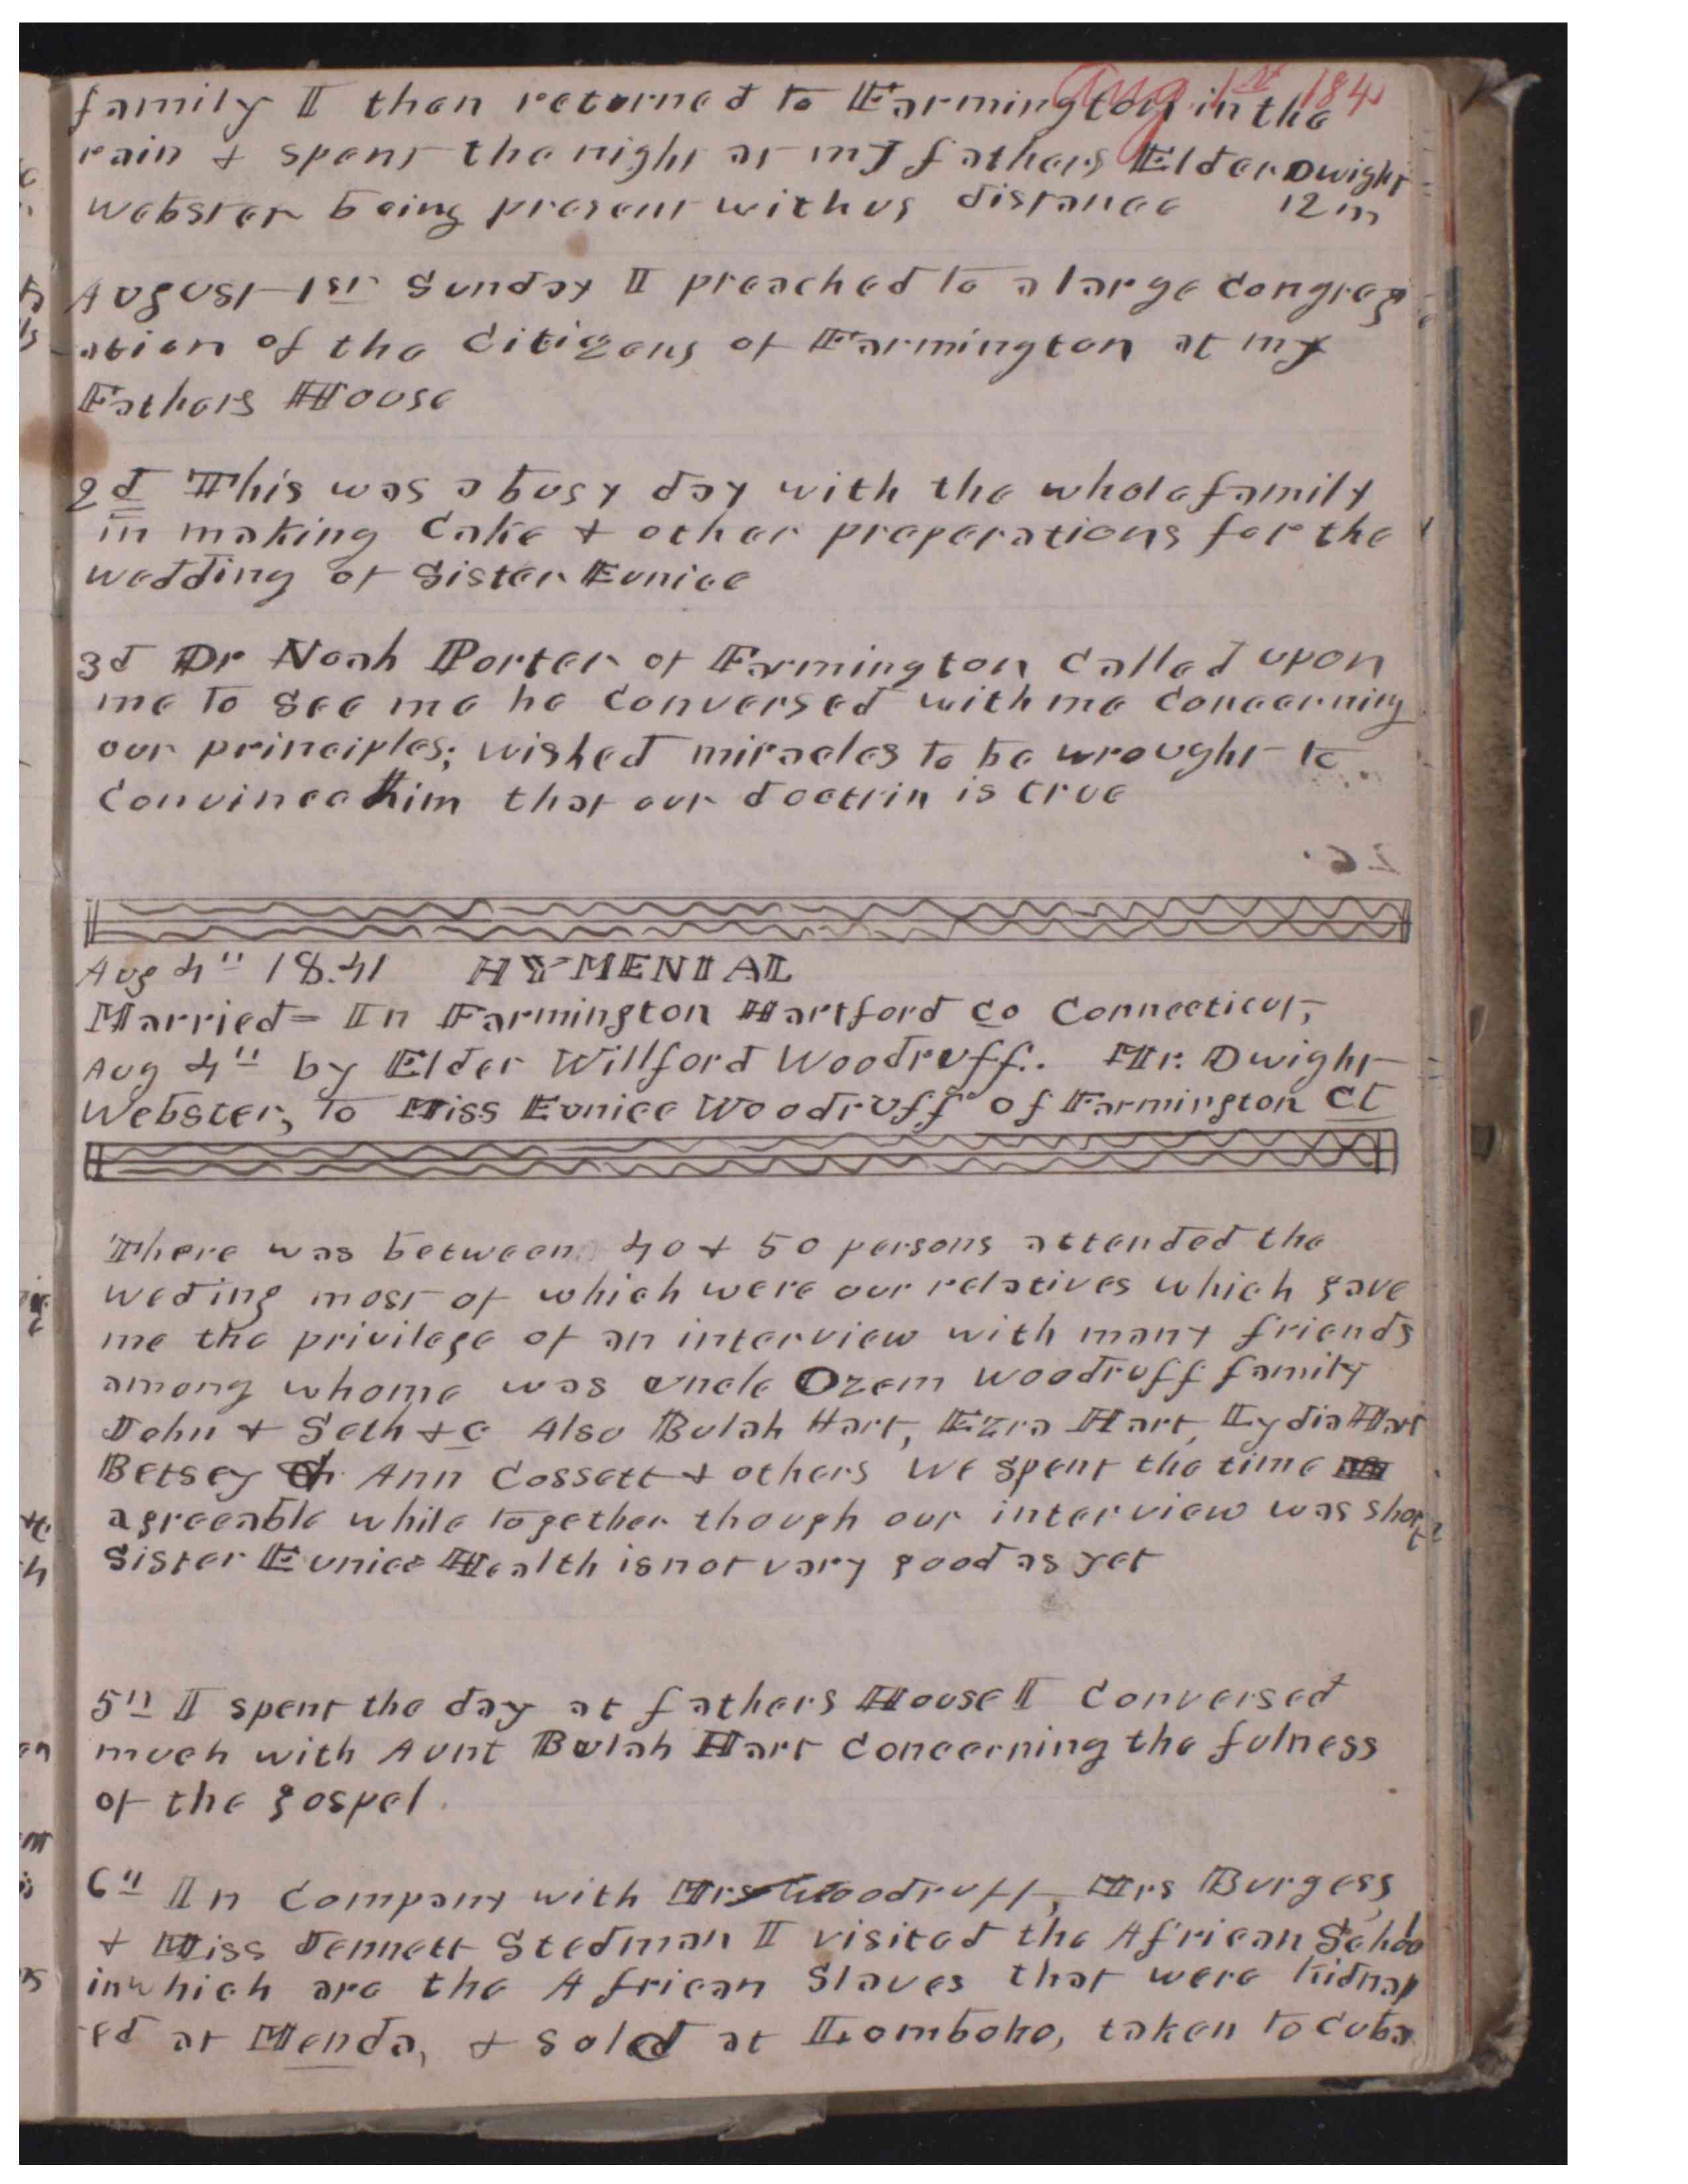 Aug. 1st 184
family I then returned to Farmington in the
rain & spent the night at my fathers Elder Dwight
webster being present with us distance 12 m
August 1st Sunday I preached to a large congreg
-ation of the Citizens of Farmington at my
Fathers House
2d This was a busy day with the whole family
in making Cake & other preperations for the
wedding of Sister Eunice
3d Dr Noah Porter of Farmington Called upon
me to see me he Conversed with me Concerning
our principles; wished miracles to be wrought to
Convince him that our doctrin is true
Aug 4th 18.41 HYMENIAL
Married= In Farmington Hartford Co Connecticut,
Aug 4th by Elder Willford Woodruff.. Mr. Dwight
Webster, to Miss Eunice Woodruff of Farmington Ct
There was between 40 & 50 persons attended the
weding most of which were our relatives which gave
me the privilege of an interview with many friends
among whome was uncle Ozem Woodruff family
John & Seth &c Also Bulah Hart, Ezra Hart, Lydia Hart
Betsey Ann Cossett & others We spent the time
agreeable while together though our interview was short
Sister Eunice Health is not vary good as yet
5th I spent the day at fathers House I Conversed
much with Aunt Bulah Hart Concerning the fulness
of the gospel.
6th In Company with Mrs Woodruff, Mrs Burgess,
& Miss Jennett Stedman I visited the African Schoo
in which are the African Slaves that were Kidnap
-ed at Menda, & sold at Lomboko, taken to Cuba